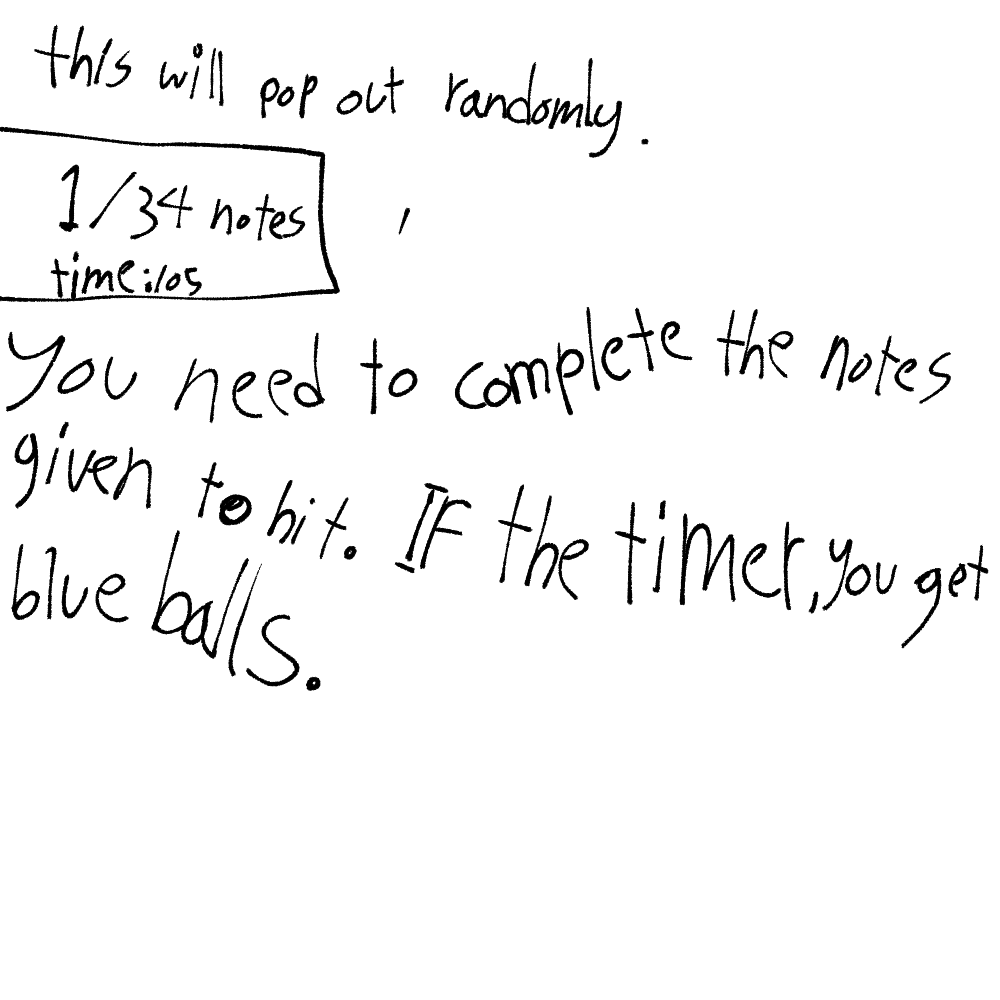 this will pop out randomly.
1/34 notes
time:10s
You need to complete the notes
given to hit. IF the timer, you get
blue balls.